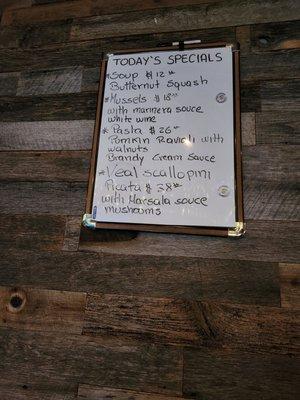 TODAY'S SPECIALS
*Soup $12⁰⁰
Butternut Squash
*Mussels $18⁰⁰
with marinera souce
white wine
*Pasta $26⁰⁰
Pomkin Ravioli with
walnuts
Brandy Cream Sauce
*Veal scallopini
Picata $28⁰⁰
with Marsala souce
mushrooms